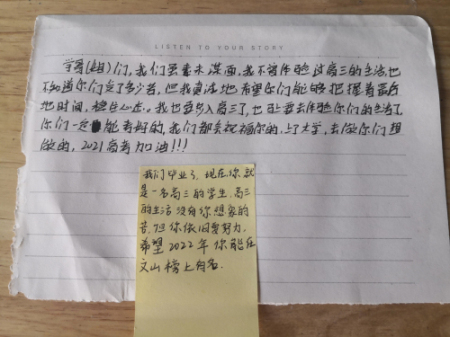 LISTEN TO YOUR STORY
学哥(姐)们,我们虽素未谋面,我不曾体验过高三的生活,也
不知道你们受了多少苦,但我真诚地希望你们能够把握着最后
地时间,稳住心态。我也要步入高三了,也即要去体验你们的生活了,
你们一定能考好的,我们都会祝福你的,上了大学,去做你们想
做的,2021高考加油!!!
我们毕业了,现在你就
是一名高三的学生,高三
的生活没有你想象的
苦,但你依旧要努力
希望2022年你能在
文山榜上有名.